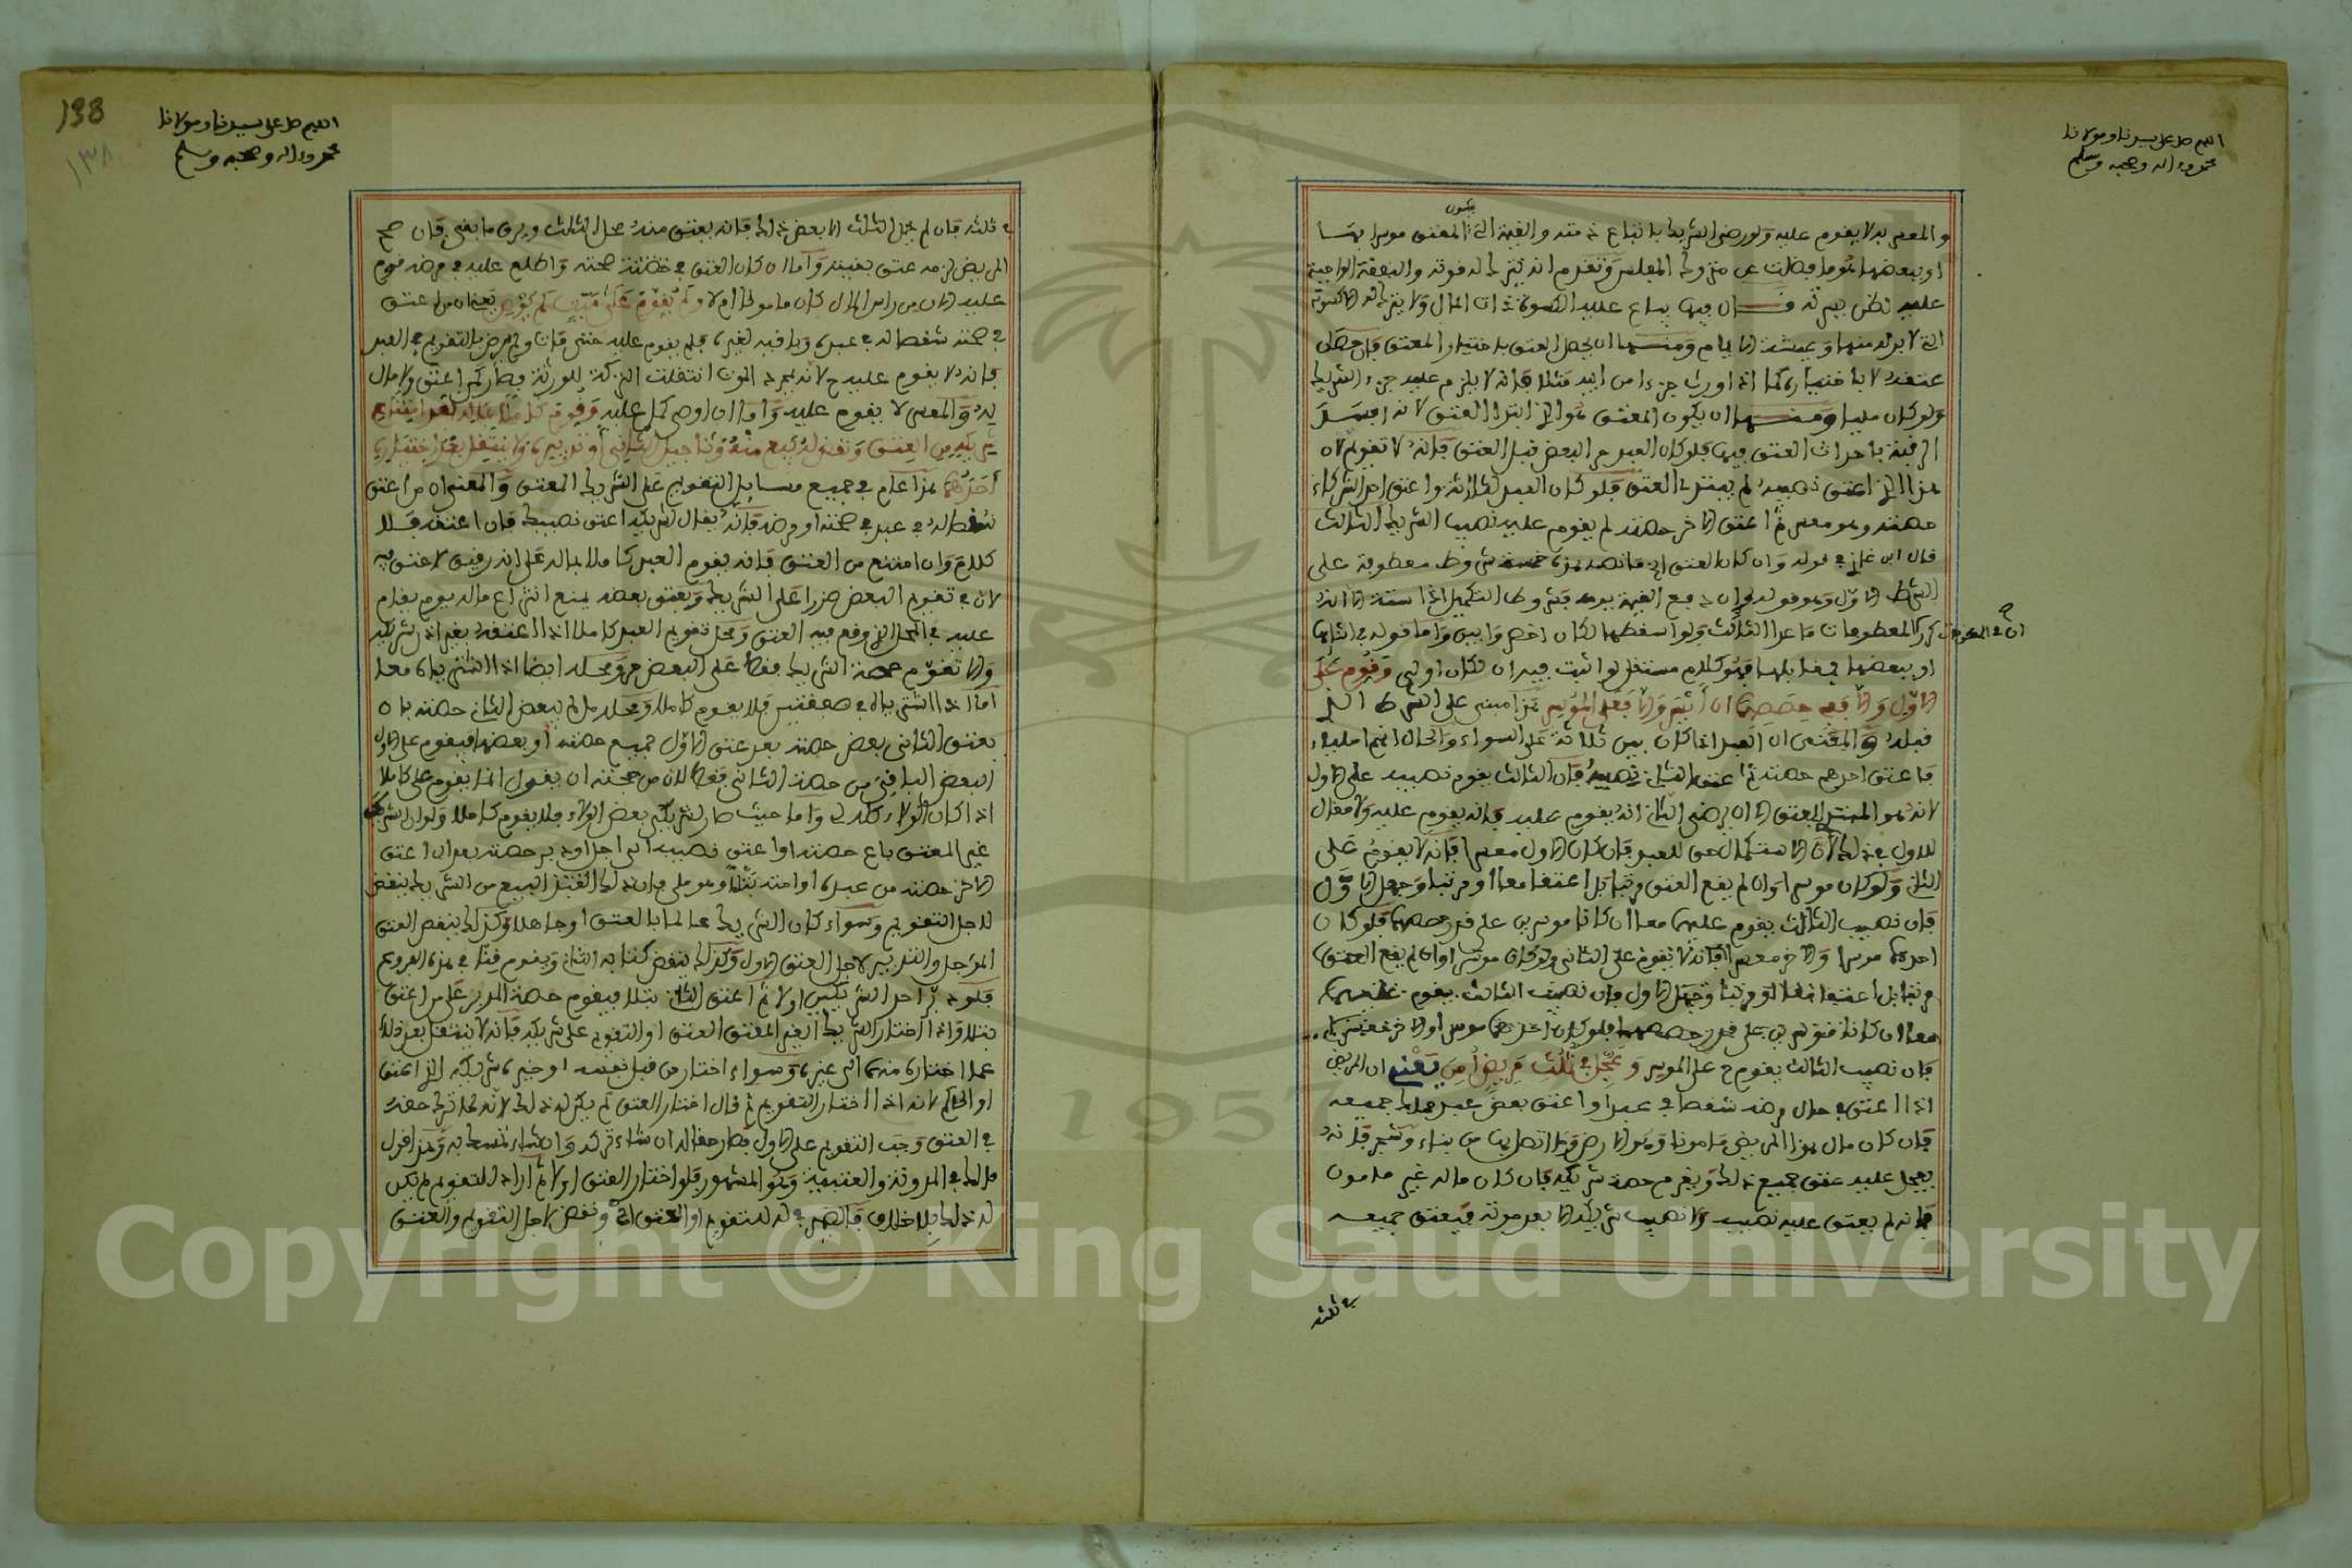 اللهم صل على سيدنا ومولانا
محمد وءاله وصحبه وسلم
والمعسر لا يقوم عليه ولو رضي الشريك باتباع ذمته والقيد الثاني ان يكون المعتق موسرا بها
او ببعضها
عليه لظن يسرته
التي لا بد له منها وعيشة الايام ومنها ان يحصل العتق باختيار المعتق فان حصل
عتقه لا باختياره كما اذا ورث جزءا من ابيه مثلا فانه لا يلزم عليه جزء الشريك
ولو كان مليا ومنها ان يكون المعتق هو الذي ابتدا العتق لانه افسد
الرقبة باحداث العتق فيها فلو كان العبد حر البعض قبل العتق فانه لا تقويم لان
هذا الذي اعتق نصيبه لم يبتدئ العتق فلو كان العبد لثلاثة واعتق احد الشركاء
حصته وهو معسر ثم اعتق الاخر حصته لم يقوم عليه نصيب الشريك الثالث
قال ابن غازي قوله وان كان العتق
الشرط الاول وهو قوله
كرر المعطوفات ما عدا الثالث ولو اسقطها لكان اخصر وابين واما قوله في اثنائها
او ببعضها فمقابلها فهو كلام مستقل لو اتيت فيه بان لكان اولى وقوم على
الاول والا فعلى حصصهما ان ايسرا والا فعلى الموسر هذا مبني على الشرط الذي
قبله والمعنى ان العبد اذا كان بين ثلاثة على السواء والحال انهم املياء
فاعتق احدهم حصته ثم اعتق الثاني نصيبه فان الثالث يقوم نصيبه على الاول
لانه هو المبتدئ للعتق الا ان يرضى الثاني انه يقوم عليه فانه يقوم عليه ولا مقال
للاول في ذلك لان الاستكمال حق للعبد فان كان الاول معسرا فانه لا يقوم على
الثاني ولو كان موسرا وان لم يقع العتق مرتبا بل اعتقا معا او مرتبا وجهل الاول
فان نصيب الثالث يقوم عليهما معا ان كانا موسرين على قدر حصصهما فلو كان
احدهما موسرا والاخر معسرا فانه لا يقوم على الثاني ولو كان موسرا وان لم يقع العتق
مرتبا بل اعتقا معا او مرتبا وجهل الاول فان نصيب الثالث يقوم عليهما
معا ان كانا موسرين على قدر حصصهما فلو كان احدهما موسرا والاخر معسرا
فان نصيب الثالث يقوم ح على الموسر وعجل في ثلث مريض امن يعني ان المريض
اذا اعتق في حال مرضه شقصا في عبد او اعتق بعض عبد يملك جميعه
فان كان مال هذا المريض مامونا وهو الارض وما اتصل بها من بناء وشجر فانه
يعجل عليه عتق جميع ذلك ويغرم حصة شريكه فان كان ماله غير مامون
فانه لم يعتق عليه نصيبه ولا نصيب شريكه الا بعد موته فيعتق جميعه
في ثلثه
138
١٣٨
اللهم صل على سيدنا ومولانا
محمد وءاله وصحبه وسلم
في ثلثه فان لم يحمل الثلث الا بعض ذلك فانه يعتق منه محمل الثلث ويرق ما بقي فان صح
المريض لزمه عتق بقيته واما ان كان العتق في صحته واطلع عليه في مرضه قوم
عليه الان من راس المال كان مامونا ام لا ولم يقوم على ميت لم يوص يعني ان من اعتق
في صحته شقصا له في عبد وباقيه لغيره فلم يقوم عليه حتى مات
فانه لا يقوم عليه ح لانه بمجرد الموت انتقلت التركة للورثة فصار كمن اعتق ولا مال
له والمعسر لا يقوم عليه واما ان اوصى كمل عليه وقوم كاملا بماله بعد امتناع
شريكه من العتق ونقض له بيع منه وتاجيل الثاني او تدبيره ولا ينتقل بعد اختياره
احدهما هذا عام في جميع مسايل التقويم على الشريك المعتق والمعنى ان من اعتق
شقصا له في عبد في صحته او مرضه فانه يقال لشريكه اعتق نصيبك فان اعتقه فلا
كلام وان امتنع من العتق فانه يقوم العبد كاملا بماله على انه رقيق لا عتق فيه
لان في تقويم البعض ضررا على الشريك وبعتق بعضه يمنع انتزاع ماله يوم يقام
عليه في المحل الذي وقع فيه العتق ومحل تقويم العبد كاملا اذا اعتقه بغير اذن شريكه
والا تقوم حصة الشريك فقط على البعض حر ومحله ايضا اذا اشترياه معا
اما اذا اشترياه في صفقتين فلا يقوم كاملا ومحله ما لم يبعض الثاني حصته بان
يعتق الثاني بعض حصته بعد عتق الاول جميع حصته او بعضها فيقوم على الاول
البعض الباقي من حصة الثاني فقط لان من حجته ان يقول انما يقوم علي كاملا
اذا كان الولاء كله لي واما حيث صار لشريكي بعض الولاء فلا يقوم كاملا ولو ان الشريك
غير المعتق باع حصته او اعتق نصيبه الى اجل او دبر حصته بعد ان اعتق
الاخر حصته من عبده او امته بتلا وهو ملي فان ذلك البيع من الشريك ينقض
لاجل التقويم وسواء كان الشريك عالما بالعتق او جاهلا وكذلك ينقض العتق
المؤجل والتدبير لاجل العتق الاول وكذلك ينقض كتابة الثاني ويقوم قنا في هذه الفروع
فلو دبر احد الشريكين اولا ثم اعتق الثاني بتلا فيقوم حصة المدبر على من اعتق
بتلا واذا اختار الشريك الغير المعتق العتق او التقويم على شريكه فانه لا ينتقل بعد ذلك
عما اختاره منهما الى غيره وسواء اختار من قبل نفسه او خيره شريكه الذي اعتق
او الحاكم لانه اذا اختار التقويم ثم قال اختار العتق لم يكن له ذلك لانه لما ترك حقه
في العتق وجب التقويم على الاول فصار حقا له ان شاء تركه وان شاء تمسك به وهذا قول
مالك في المدونة والعتبية وهو المشهور فلو اختار العتق اولا ثم اراد التقويم لم يكن
له ذلك بلا خلاف ونقض لاجل التقويم والعتق